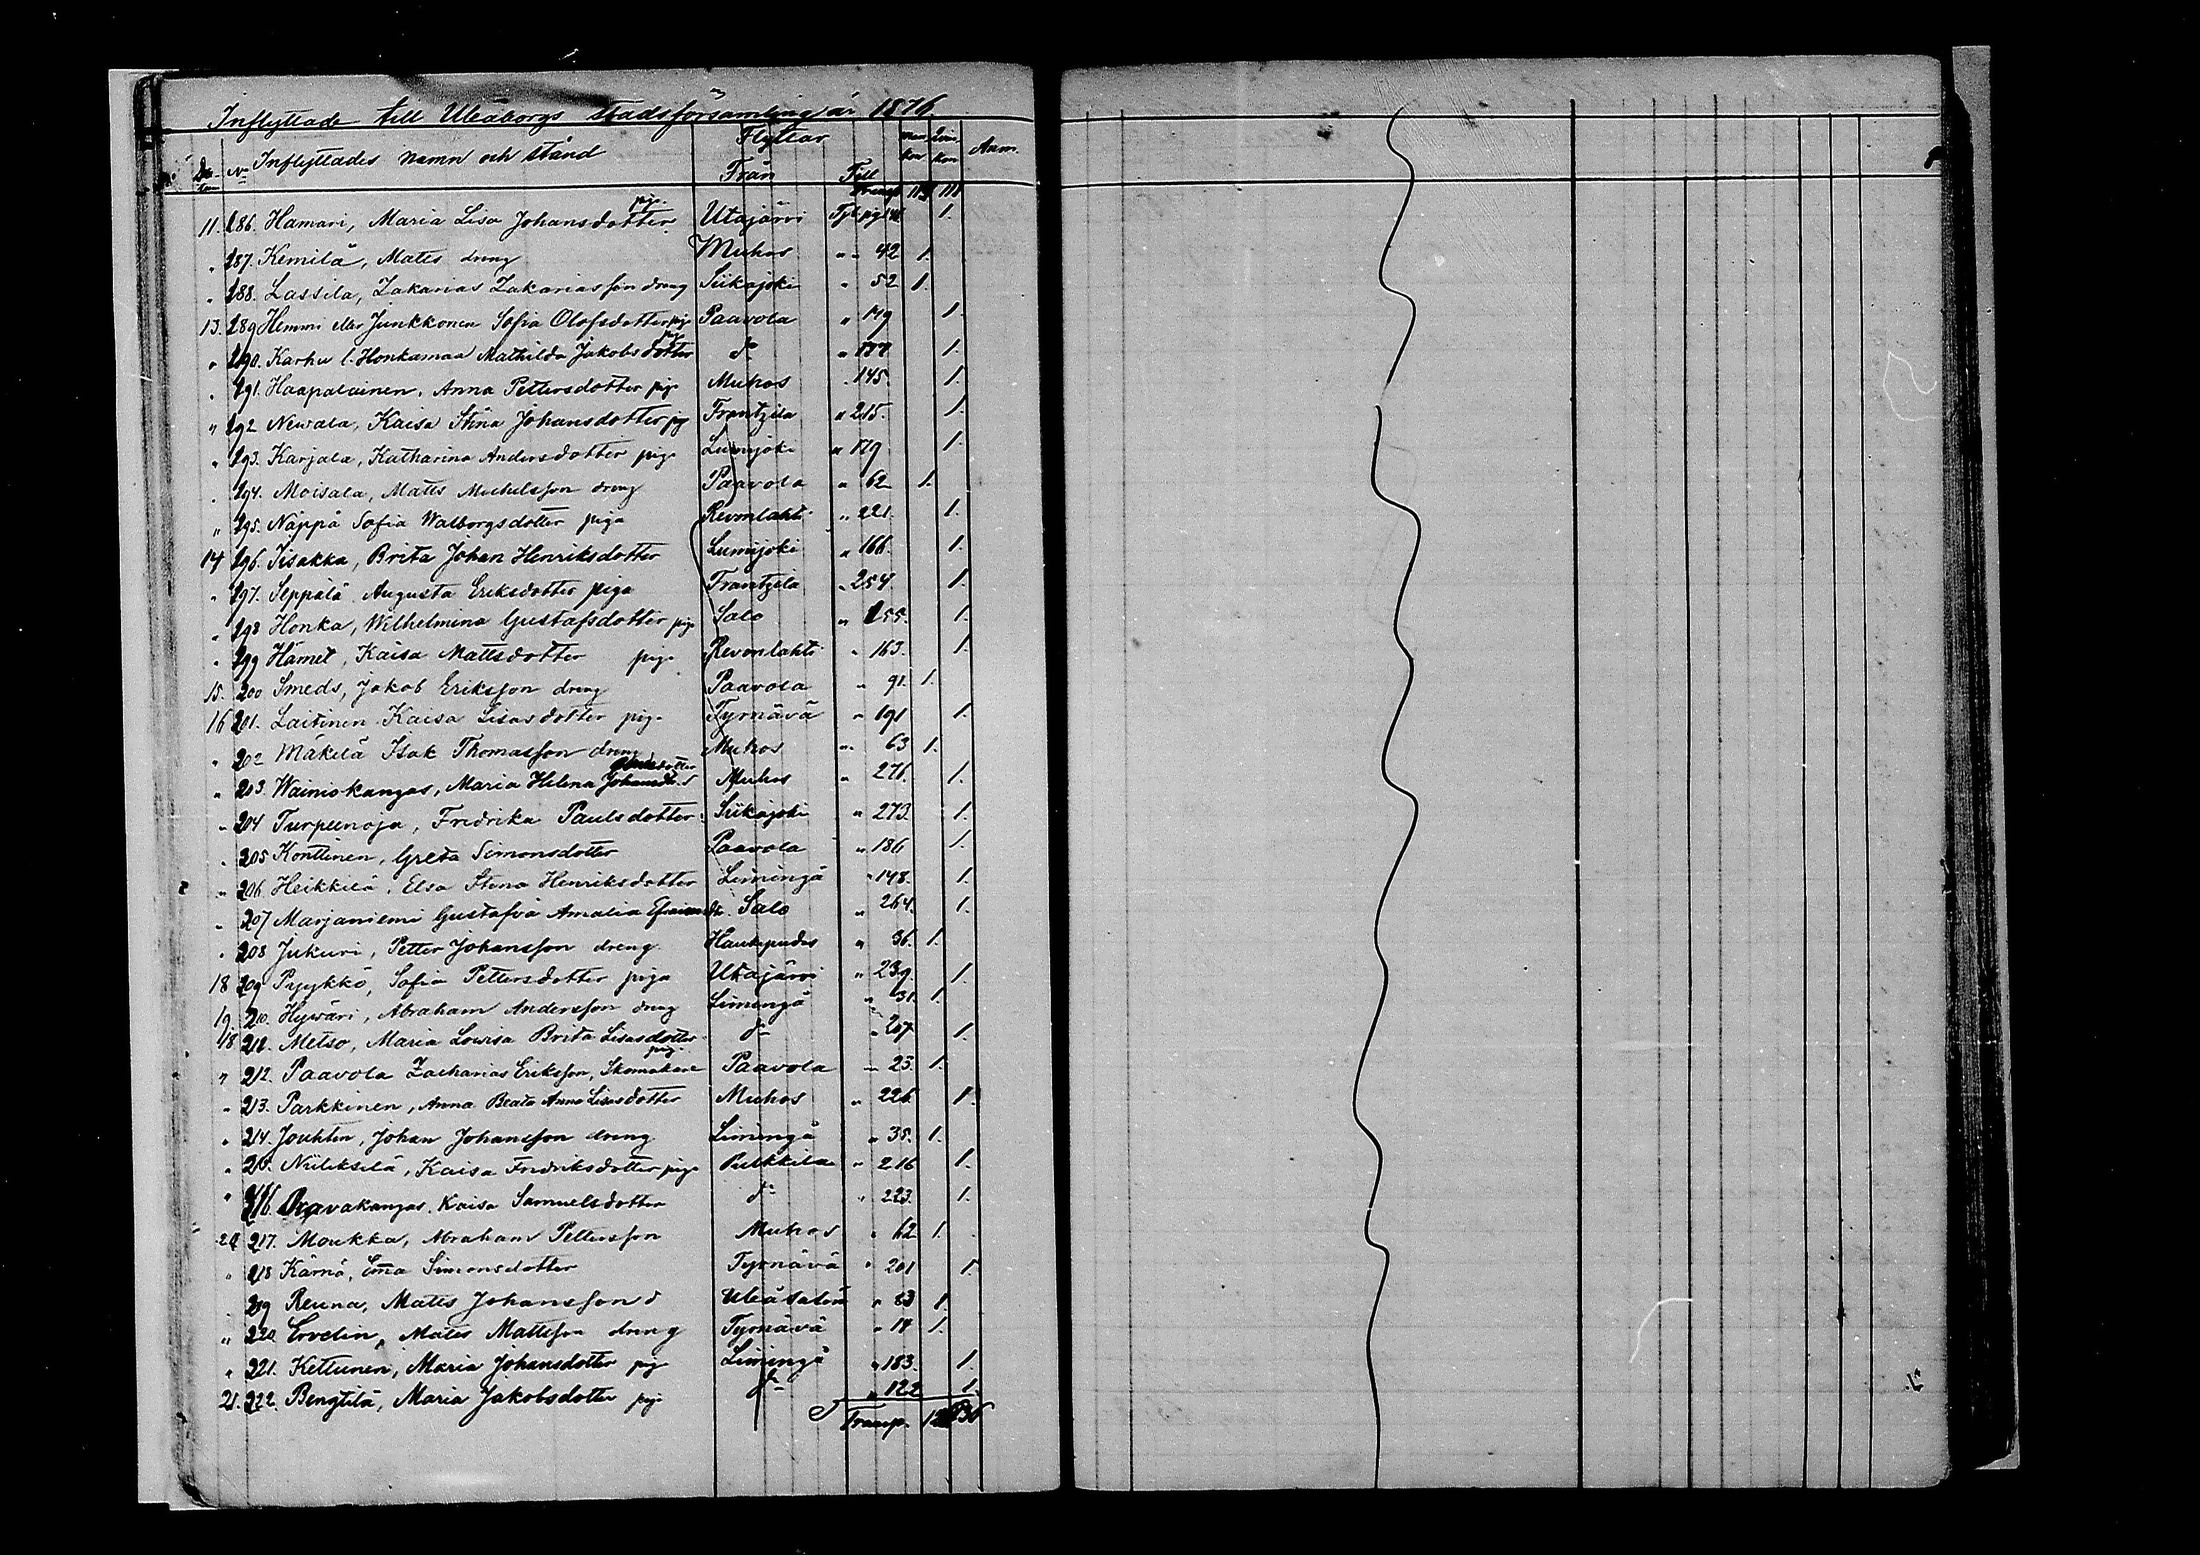 Inflyttade till Uleåborgs stadsförsamling år 1876.
Da- tum No Inflyttades namn och stånd Flyttar Från Till man kön qvin kön Anm.
Transp. 111
11. 186. Hamari, Maria Lisa Johansdotter pig. Utajärvi 1.
" 187. Kemilä, Matts dreng Muhos " " 42 1.
" 188. Lassila, Zakarias Zakariasson dreng Siikajoki " 52 1.
13. 189 Hemmi eller Junkkonen Sofia Olofsdotter pig Paavola " 1.
" 190. Karhu l. Honkamaa Mathilda Jakobsdotter pig do " 177 1.
" 191. Haapalainen, Anna Pettersdotter pig. Muhos " 145. 1.
" 192 Newala, Kaisa Stina Johansdotter pig Frantzila " 215. 1.
" 193. Karjala, Katharina Andersdotter pig. Lumijoki " 179 1.
" 194. Moisala, Matts Michelsson dreng Paavola " 62 1.
" 195. Näppä Sofia Walborgsdotter piga Revonlahti " 221. 1.
14 196. Iisakka, Brita Johan Henriksdotter Lumijoki " 166. 1.
" 197. Seppälä Augusta Eriksdotter piga Frantzila " 254. 1.
" 198 Honka, Wilhelmina Gustafsdotter pig Salo " 155. 1.
" 199 Hämet, Kaisa Mattsdotter pig. Revonlahti " 163. 1.
15. 200 Smeds, Jakob Eriksson dreng Paavola " 91. 1.
16 201. Laitinen Kaisa Lisasdotter pig. Tyrnävä " 191 1.
" 202 Mäkelä Isak Thomasson dreng Muhos " 63 1.
" 203. Wainiokangas, Maria Helena Muhos " 276. 1.
" 204 Turpeenoja, Fredrika Paulsdotter Siikajoki " 273. 1.
" 205 Konttinen, Greta Simonsdotter Paavola " 186 1.
" 206 Heikkilä, Elsa Stina Henriksdotter Limingå " 148. 1.
" 207 Marjaniemi Gustafva Amalia Efraimsdtr. Salo " 264. 1.
" 208 Jukuri, Petter Johansson dreng Haukipudas " 36. 1.
18 209 Pyykkö, Sofia Pettersdotter piga Utajärvi " 239. 1.
19 210. Hyväri, Abraham Andersson dreng Limingå " 31. 1.
18 211. Metso, Maria Lovisa Brita Lisasdotter pig. do " 207 1.
" 212. Paavola Zacharias Eriksson, Skomakare Paavola " 23. 1.
" 213. Parkkinen, Anna Beata Anna Lisasdotter Muhos " 226. 1.
" 214. Jouhten, Johan Johansson dreng Limingå " 35. 1.
" 215. Niileksilä, Kaisa Fredriksdotter pig Pulkkila " 216 1.
" 216. Kaisa Samuelsdotter do " 223. 1.
20 217. Moukka, Abraham Pettersson Muhos " 62 1.
" 218 Kärnä, Emma Simonsdotter Tyrnävä " 201 1.
" 219 Reuna, Matts Johansson d Uleå Salo " 83 1.
" 220. Ervelin, Matts Mattsson dreng Tyrnävä " 14 1.
" 221. Kettunen, Maria Johansdotter pig Limingå " 183. 1.
21. 222. Bengtilä, Maria Jakobsdotter pig. do " 122 1.
Transp. 136